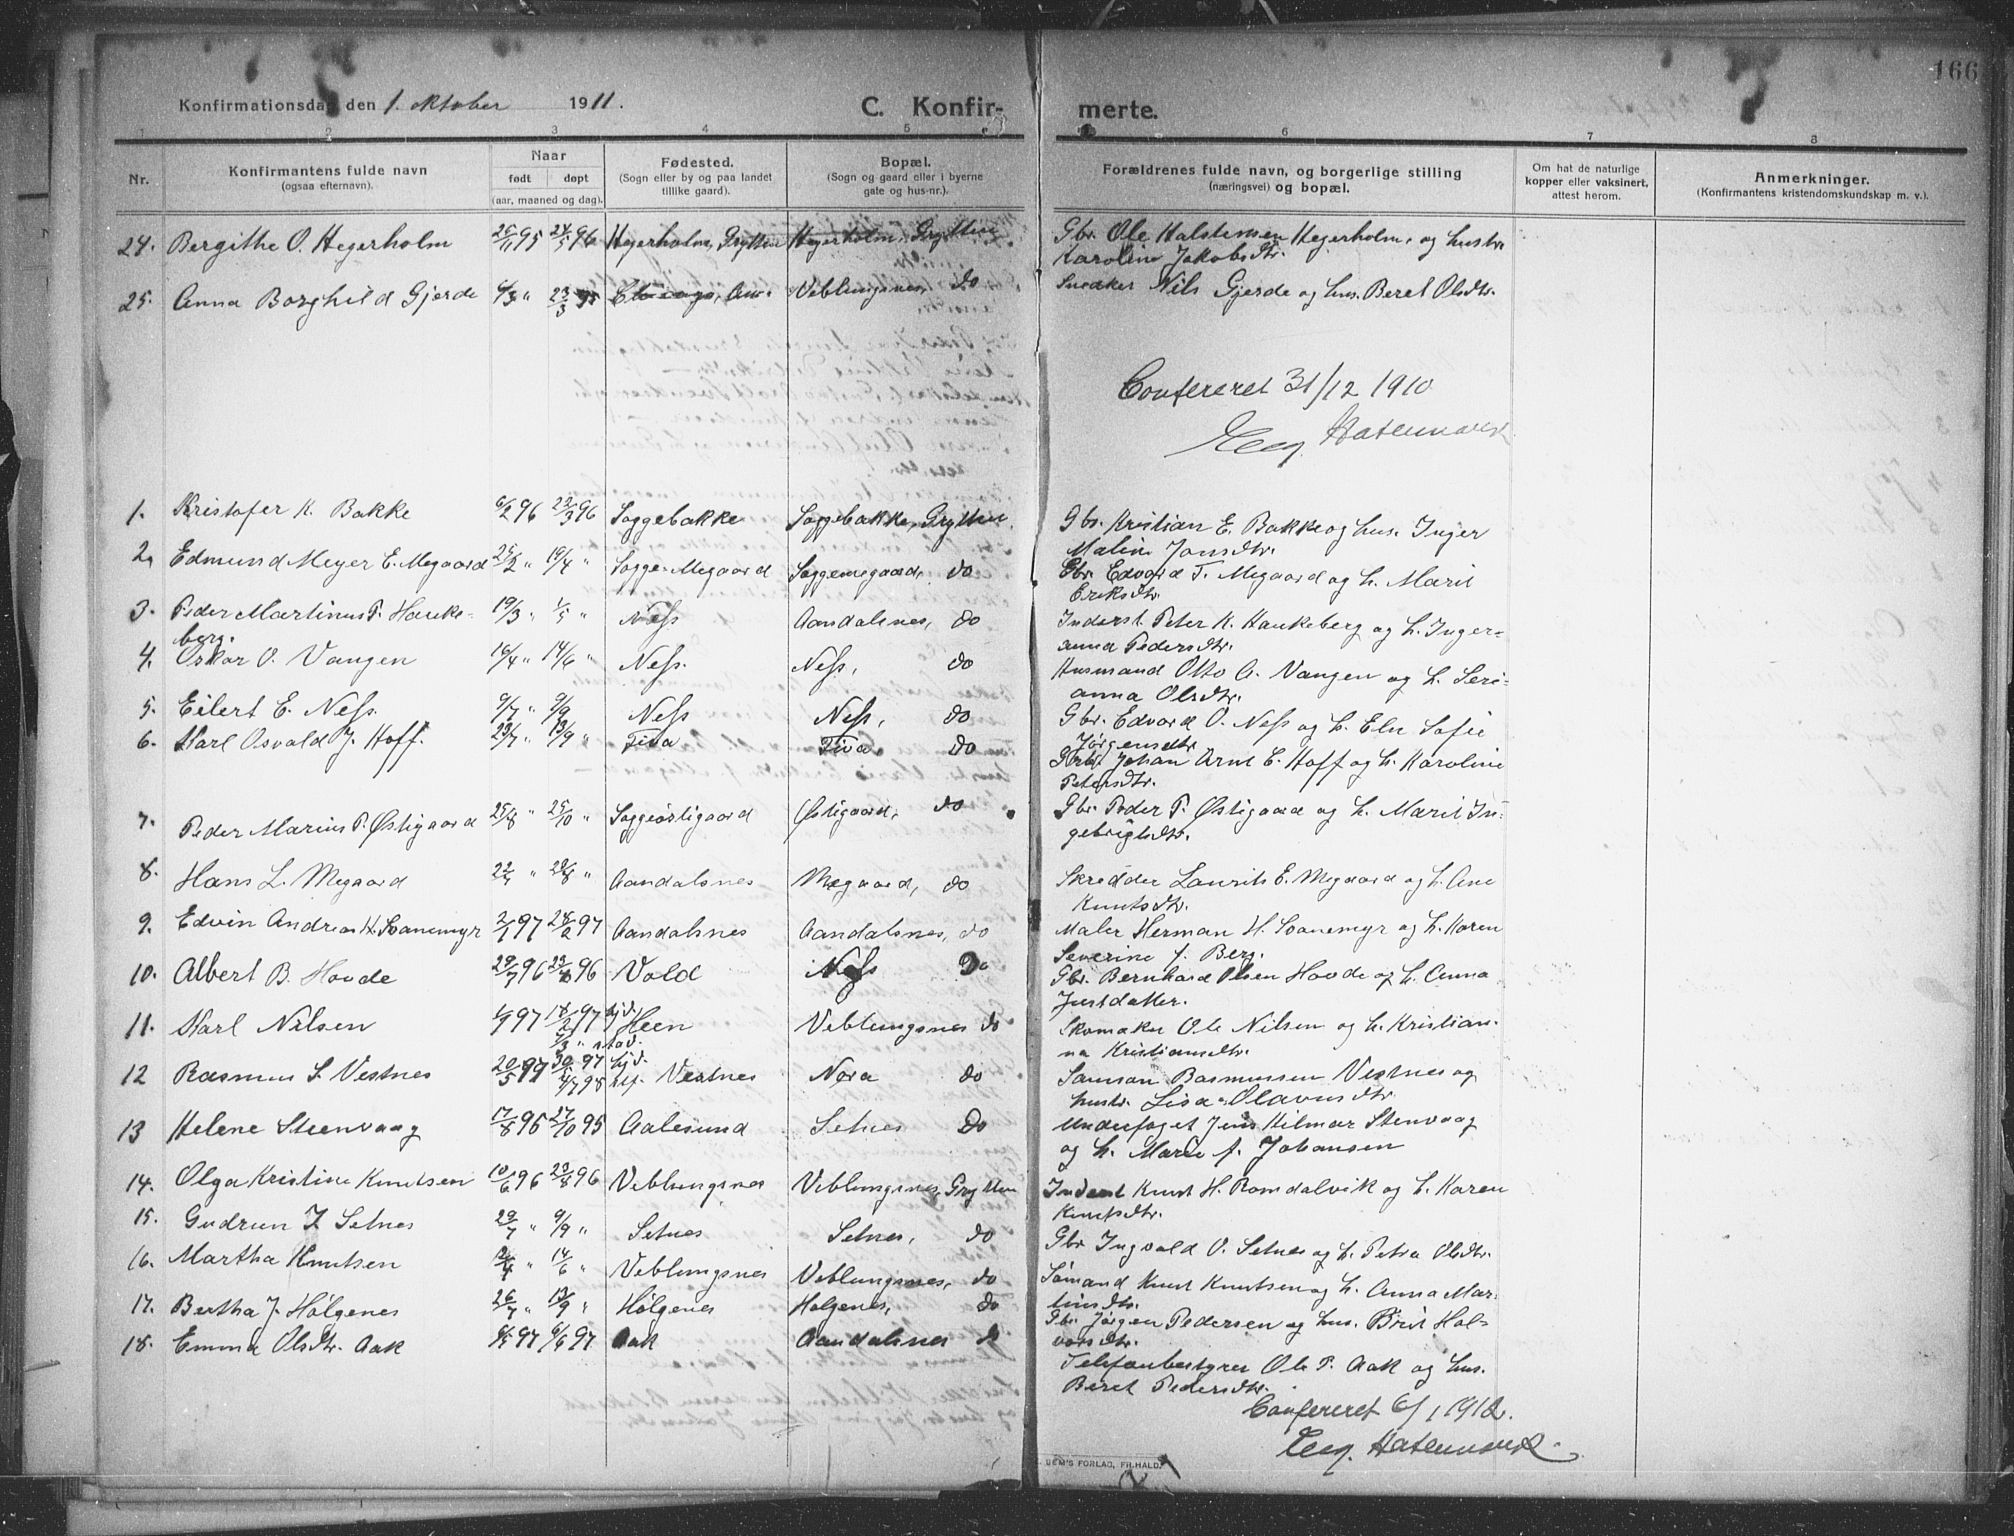 166
Konfirmationsdag den 1. oktober 1911.
C. Konfirmerte.
1 2 3 4 5 6 7 8
Nr.
Konfirmantens fulde navn
(ogsaa efternavn).
Naar
født døpt
(aar, maaned og dag).
Fødested.
(Sogn eller by og paa landet
tillike gaard).
Bopæl.
(Sogn og gaard eller i byerne
gate og hus-nr.).
Forældrenes fulde navn, og borgerlige stilling
(næringsvei) og bopæl.
Om hat de naturlige
kopper eller vaksinert,
attest herom.
Anmerkninger.
(Konfirmantens kristendomskundskap m. v.).
24. Bergithe O. Hegerholm 26/11 95 24/5 96 Hegerholm, Grytten Hegerholm, Grytten Gbr. Ole Halstensen Hegerholm, og hustr.
Karoline Jakobsdtr.
25. Anna Borghild Gjerde 4/3 " 23/3 95 Chicago, Am. Veblungsnes, do Snedker Nils Gjerde og hus. Beret Olsdtr.
Confereret 31/12 1910
1. Kristofer K. Bakke 6/2 96 22/3 96 Soggebakke Soggebakke, Grytten. Gbr. Kristian E. Bakke og hus. Inger
Malin Jonsdtr.
2. Edmund Meyer E. Megaard 25/2 " 19/4 " Sogge-Megaard Soggemegaard, do Gbr. Edvard T. Megaard og h. Marit
Eriksdtr.
3. Peder Martinus P. Hauke-
berg. 19/3 " 1/5 " Ness Aandalsnes, do Inderst Peter K. Haukeberg og h. Inger-
anna Pedersdtr.
4. Oskar O. Vangen 16/4 " 14/6 " Ness. Ness, do Husmand Otto A. Vangen og h. Seri-
anna Olsdtr.
5. Eilert E. Ness. 9/7 " 9/9 Ness Ness, do Gbr. Edvard O. Ness og h. Eln Sofie
Jørgensdtr.
6. Karl Osvald J. Hoff. 23/7 " 13/9 " Tiva Tiva, do Johan Arnt E. Hoff og h. Karoline
Petersdtr.
7. Peder Marius P. Østigaard 25/8 " 25/10 " Soggeøstigaard Østigaard, do Gbr. Peder P. Østigaard og h. Marit In-
gebrigtsdtr.
8. Hans L. Megaard " " Aandalsnes Megaard, do Skrædder Laurits E. Megaard og h. Ane
Knutsdtr.
9. Edvin Andreas H. Svanemyr 2/1 97 28/2 97 Aandalsnes Aandalsnes, do Maler Herman H. Svanemyr og h. Karen
Severine f. Berg.
10. Albert B. Hovde 29/7 96 23/8 96 Vold Ness Do Gbr. Bernhard Olsen Hovde og h. Anna
Justdatter.
11. Karl Nilsen 97 18/2 97 hjd. Heen Veblungsnes do Skomaker Ole Nilsen og h. Kristian-
na Kristiansdtr.
12 Rasmus S. Vestnes 20/5 97 30/5 97 hjd. Vestnes Nora do Samson Rasmussen Vestnes og
hustr. Lisa Olavusdtr.
13 Helene Steenvaag 17/8 95 27/10 95 Aalesund Setnes Do Underfoget Jens Hilmar Stenvaag
og h. Marie f. Johansen
14. Olga Kristine Knutsen 10/6 96 23/8 96 Veblungsnes Veblungsnes, Grytten Inderst Knut H. Romdalvik og h. Karen
Knutsdtr.
15. Gudrun I. Setnes 29/7 " 9/9 " Setnes Setnes, do Gbr. Ingvald O. Setnes og h. Petra Olsdtr.
16. Martha Knutsen " 14/6 " Veblungsnes Veblungsnes, do Sømand Knut Knutsen og h. Anna Mar-
tinsdtr.
17. Bertha J. Hølgenes 26/7 " 13/9 " Hølgenes Hølgenes, do Gbr. Jørgen Pedersen og hus. Brit Hal-
vorsdtr.
18. Emma Olsdtr. Aak 97 6/6 97 Aak Aandalsnes d Telefonbestyrer Ole P. Aak og hus.
Beret Pedersdtr.
Confereret 6/1 1912.
SEM'S FORLAG, FR.HALD.